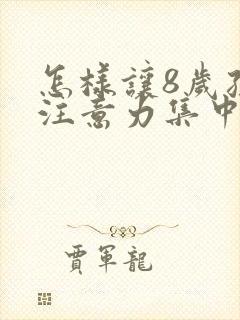 怎樣讓8歲孩
注意力集中
賈軍龍